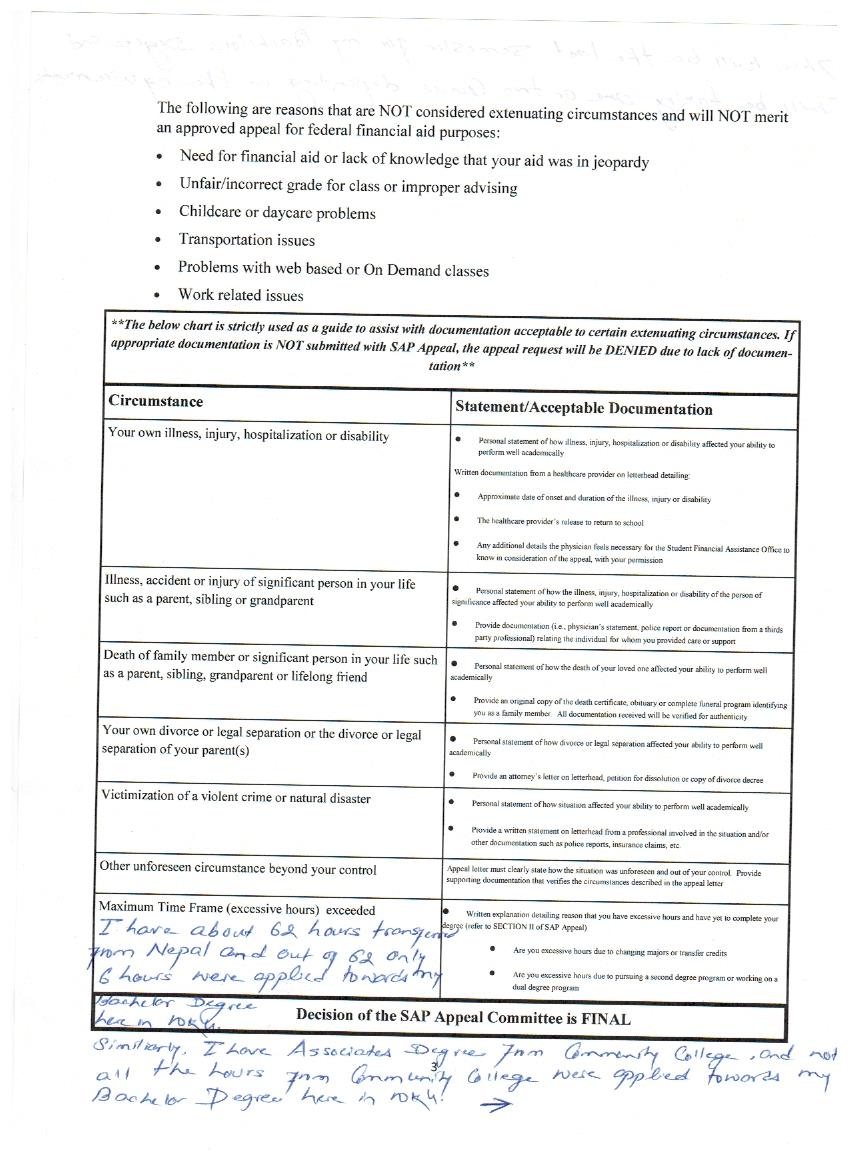 The following are reasons that are NOT considered extenuating circumstances and will NOT merit
an approved appeal for federal financial aid purposes:
• Need for financial aid or lack of knowledge that your aid was in jeopardy
• Unfair/incorrect grade for class or improper advising
• Childcare or daycare problems
• Transportation issues
• Problems with web based or On Demand classes
• Work related issues
**The below chart is strictly used as a guide to assist with documentation acceptable to certain extenuating circumstances. If
appropriate documentation is NOT submitted with SAP Appeal, the appeal request will be DENIED due to lack of documen-
tation**
Circumstance
Statement/Acceptable Documentation
Your own illness, injury, hospitalization or disability
• Personal statement of how illness, injury, hospitalization or disability affected your ability to
perform well academically
Written documentation from a healthcare provider on letterhead detailing:
• Approximate date of onset and duration of the illness, injury or disability
• The healthcare provider's release to return to school
• Any additional details the physician feels necessary for the Student Financial Assistance Office to
know in consideration of the appeal, with your permission
Illness, accident or injury of significant person in your life
such as a parent, sibling or grandparent
• Personal statement of how the illness, injury, hospitalization or disability of the person of
significance affected your ability to perform well academically
• Provide documentation (i.e., physician's statement, police report or documentation from a thirds
party professional) relating the individual for whom you provided care or support
Death of family member or significant person in your life such
as a parent, sibling, grandparent or lifelong friend
• Personal statement of how the death of your loved one affected your ability to perform well
academically
• Provide an original copy of the death certificate, obituary or complete funeral program identifying
you as a family member. All documentation received will be verified for authenticity
Your own divorce or legal separation or the divorce or legal
separation of your parent(s)
• Personal statement of how divorce or legal separation affected your ability to perform well
academically
• Provide an attorney's letter on letterhead, petition for dissolution or copy of divorce decree
Victimization of a violent crime or natural disaster
• Personal statement of how situation affected your ability to perform well academically
• Provide a written statement on letterhead from a professional involved in the situation and/or
other documentation such as police reports, insurance claims, etc.
Other unforeseen circumstance beyond your control
Appeal letter must clearly state how the situation was unforeseen and out of your control. Provide
supporting documentation that verifies the circumstances described in the appeal letter
Maximum Time Frame (excessive hours) exceeded
I have about 62 hours transferred
from Nepal and out of 62 only
6 hours were applied towards my
Bachelor Degree
here in WKU.
• Written explanation detailing reason that you have excessive hours and have yet to complete your
degree (refer to SECTION II of SAP Appeal)
• Are you excessive hours due to changing majors or transfer credits
• Are you excessive hours due to pursuing a second degree program or working on a
dual degree program
Decision of the SAP Appeal Committee is FINAL
Similiarly, I have Associates Degree from Community College, and not
all the hours from Community College were applied towards my
3
Bachelor Degree here in WKU. →